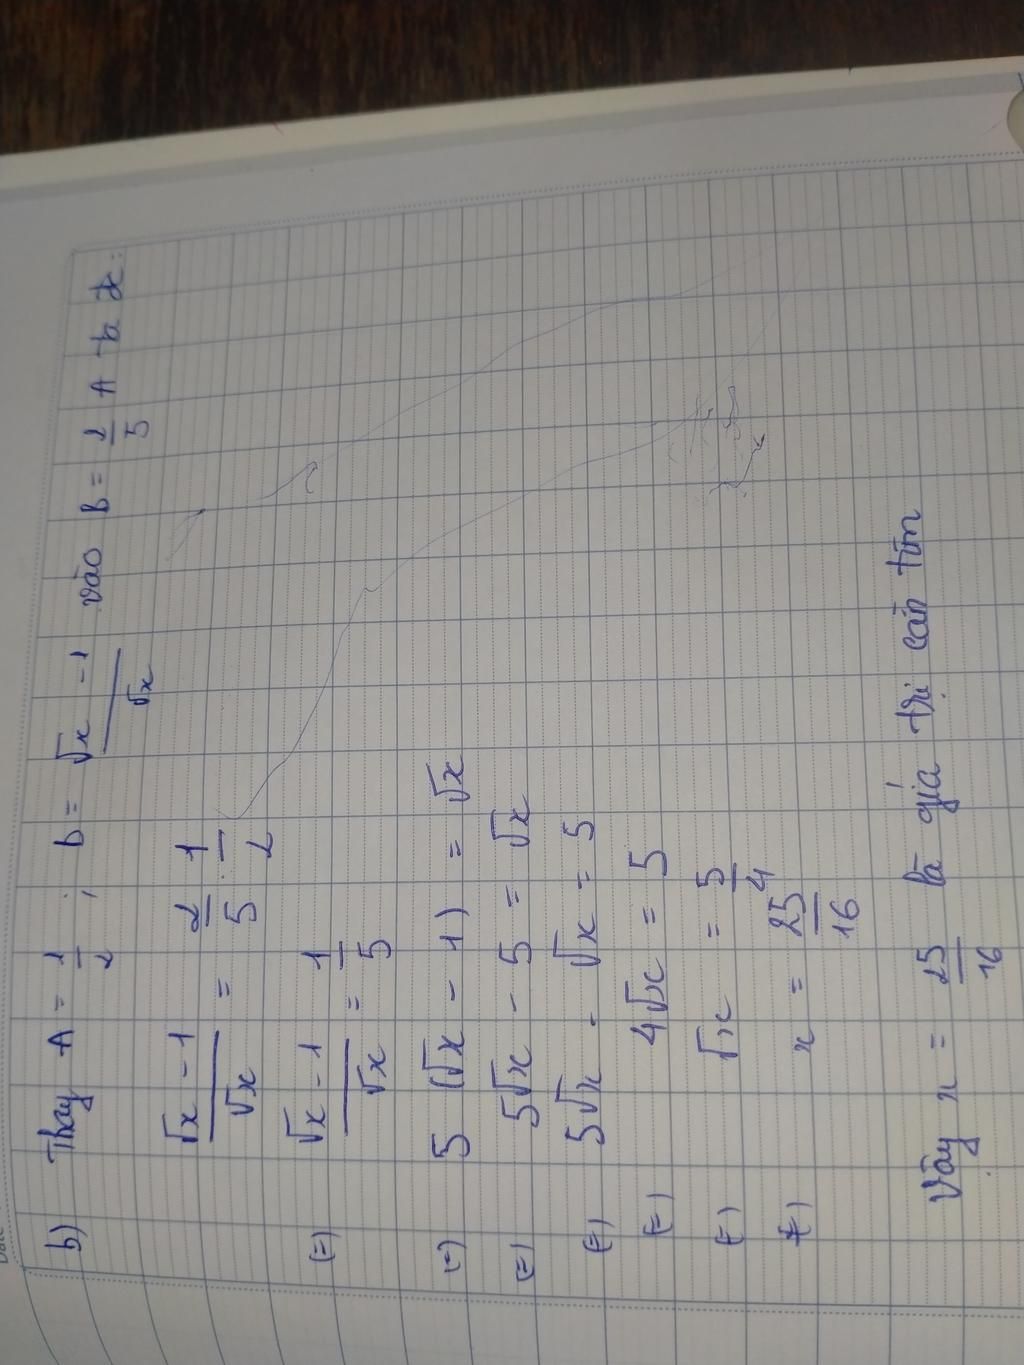 b) Thay A = 1/2 ; B = (√x - 1)/√x vào B = 2/5 A ta đc:
(√x - 1)/√x = 2/5 . 1/2
(=) (√x - 1)/√x = 1/5
(=) 5 (√x - 1) = √x
(=) 5√x - 5 = √x
(=) 5√x - √x = 5
(=) 4√x = 5
(=) √x = 5/4
(=) x = 25/16
Vậy x = 25/16 là giá trị cần tìm